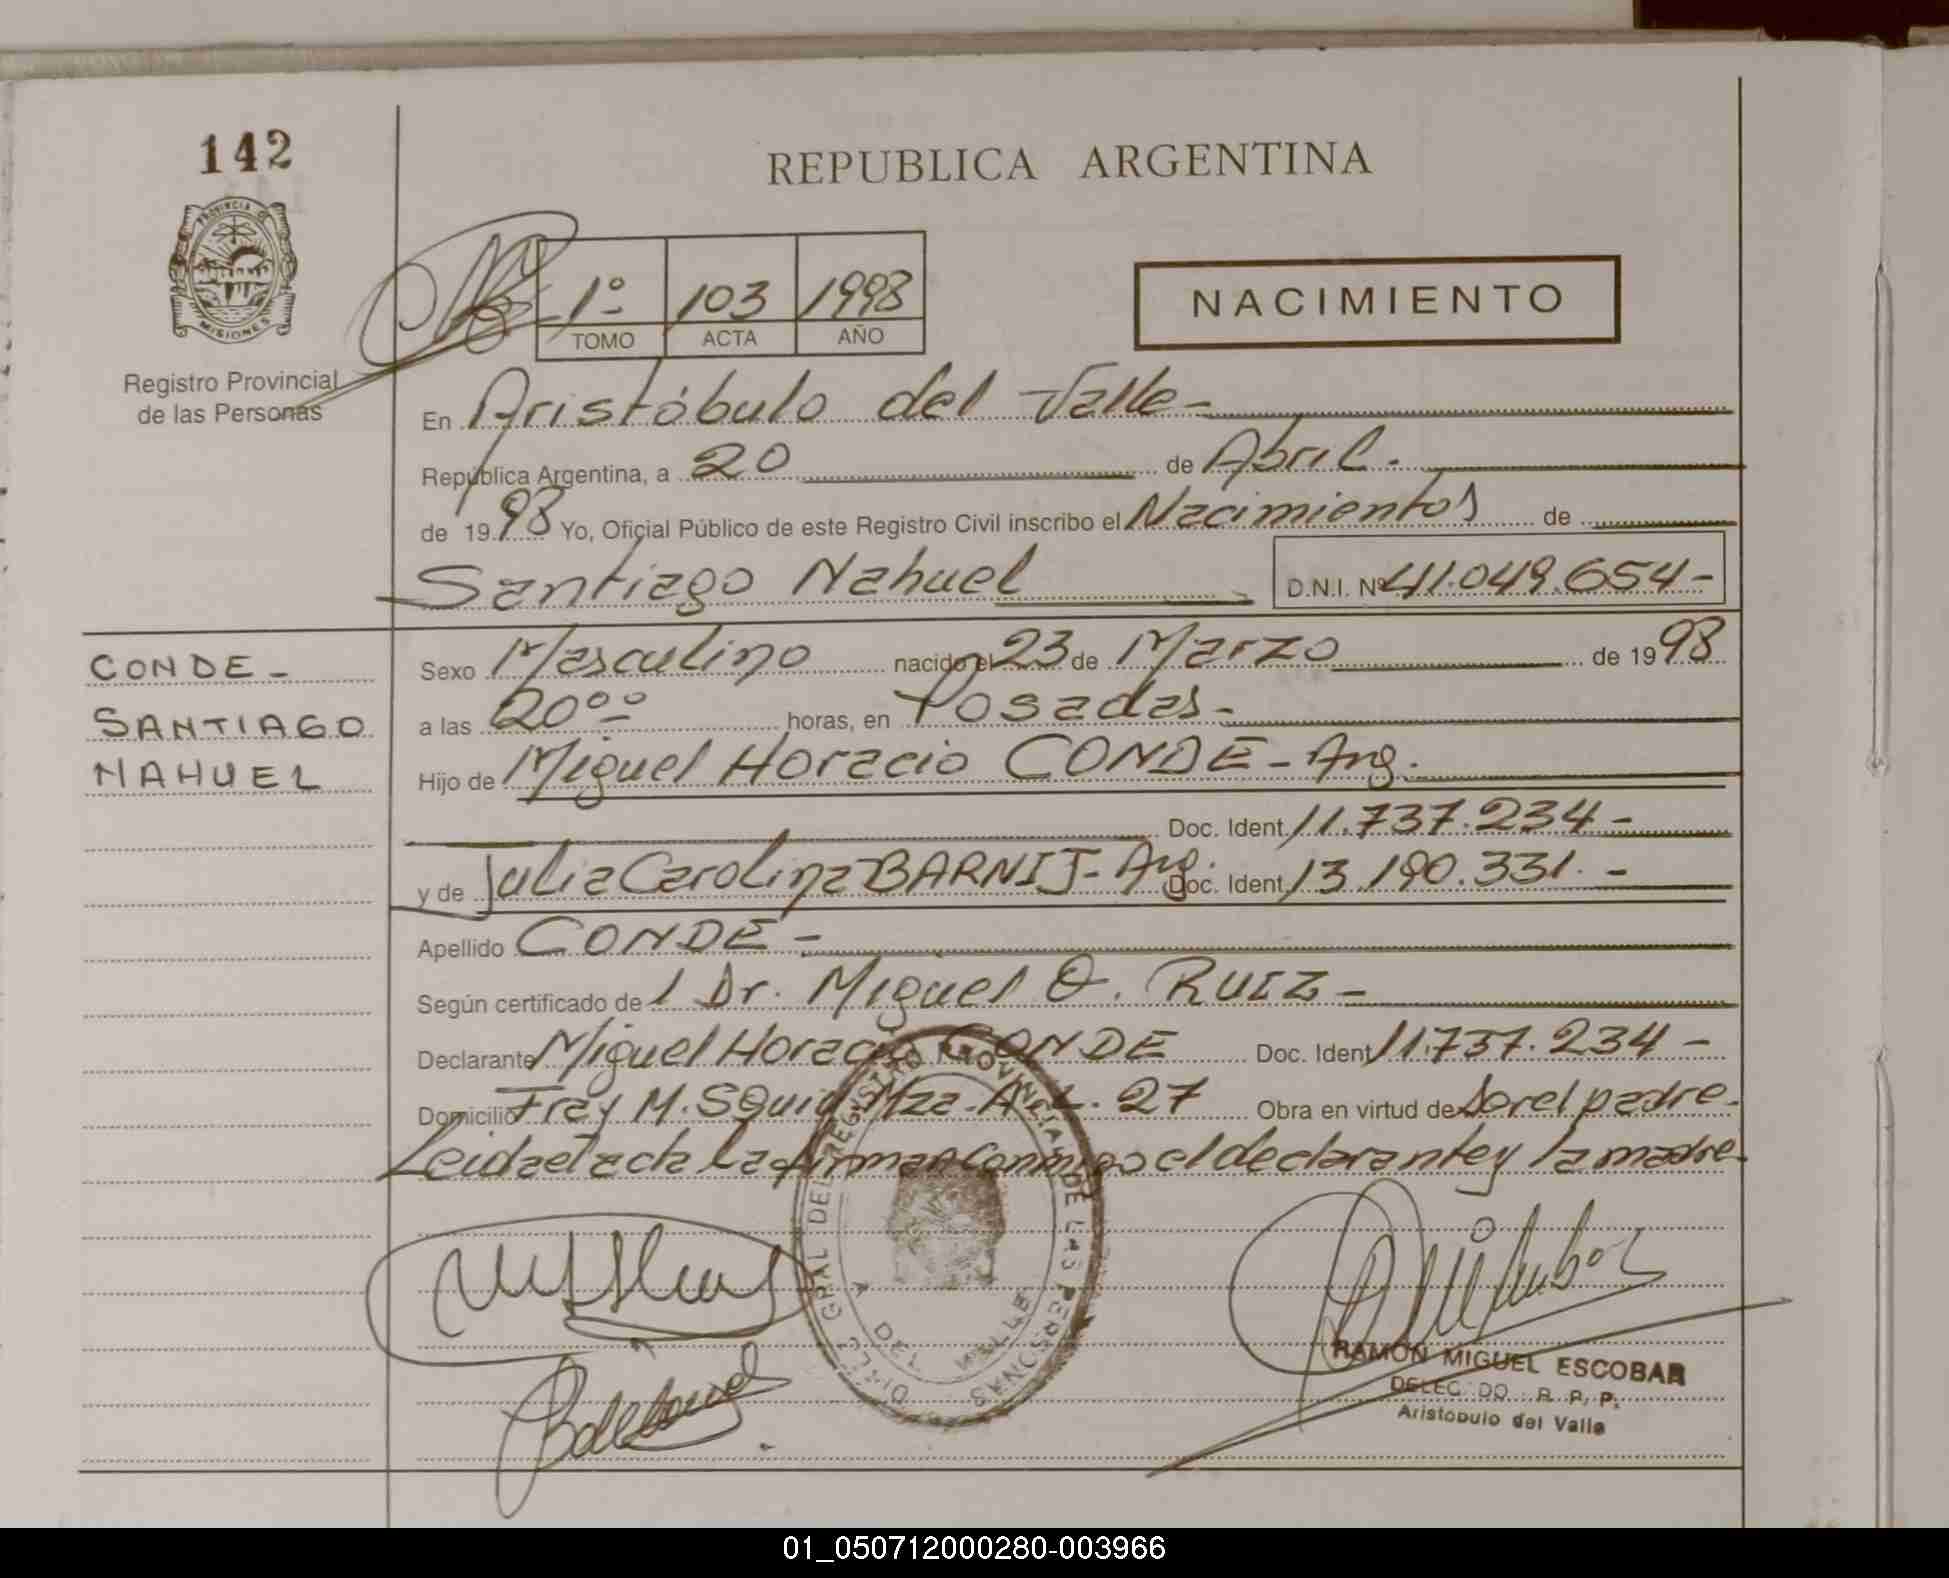 142
REPUBLICA ARGENTINA
PROVINCIA DE
MISIONES
1º 103 1998
TOMO ACTA AÑO
NACIMIENTO
Registro Provincial
de las Personas
En Aristóbulo del Valle-
República Argentina, a 20 de Abril.
de 1998 Yo, Oficial Público de este Registro Civil inscribo el Nacimientos de
Santiago Nahuel D.N.I. Nº 41.049.654-
CONDE-
SANTIAGO
NAHUEL
Sexo Masculino nacido el 23 de Marzo de 1998
a las 20⁰⁰ horas, en Posadas-
Hijo de Miguel Horacio CONDE- Arg.
Doc. Ident. 11.737.234-
y de Julia Carolina BARNIJ- Arg. Doc. Ident. 13.190.331.-
Apellido CONDE-
Según certificado de l Dr. Miguel O. RUIZ-
Declarante Miguel Horacio CONDE Doc. Ident 11.737.234-
Domicilio Fray M. 27 Obra en virtud de Ser el padre-
Leida el acta La firman Conmigo el declarante y la madre-
DIREC. GRAL DEL REGISTRO PROVINCIAL DE LAS PERSONAS
A. DEL VALLE
RAMON MIGUEL ESCOBAR
DELEGADO R. P. P.
Aristobulo del Valle
01_050712000280-003966